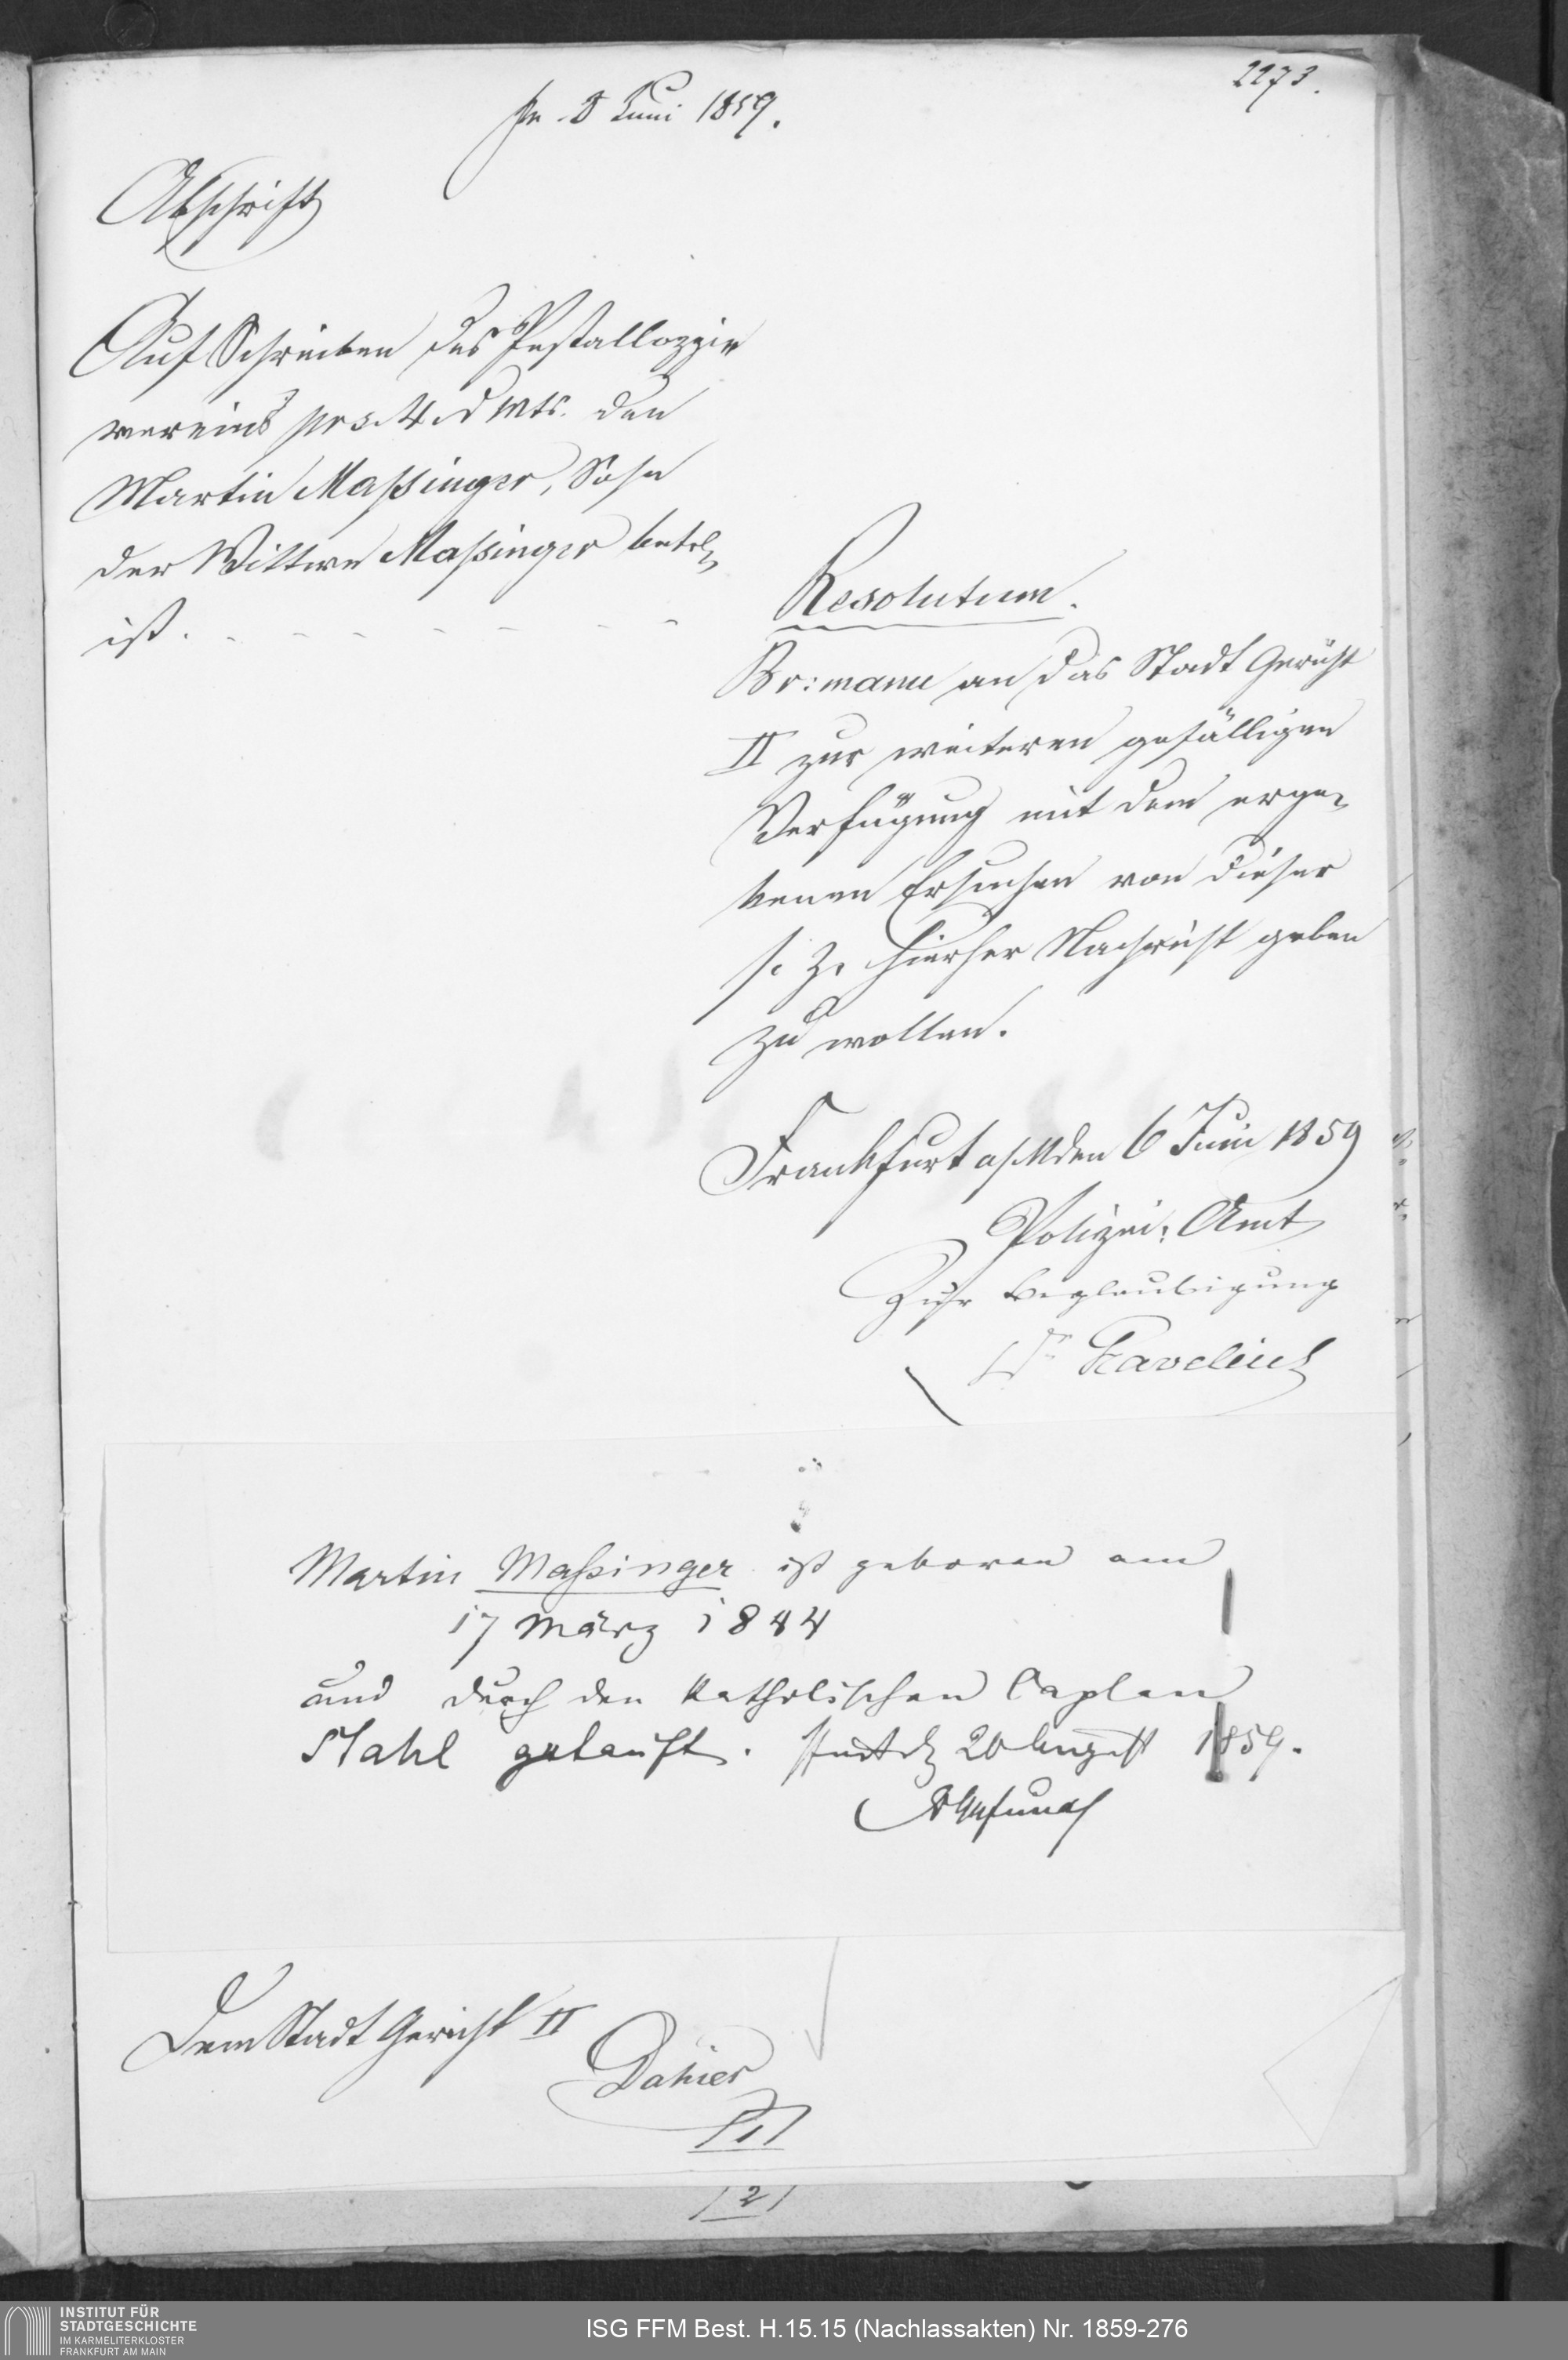 2273.
pr. 8 Juni 1859.
Abschrift
Auf Schreiben des Pestallozzie
vereins prs. 4. d Mts. den
Martin Maßinger, Sohn
der Wittwe Maßinger betr.
ist.
Resolutum.
Br: manu an das Stadt Gericht
II zur weiteren gefälligen
Verfügung mit dem erge-
benen Ersuchen von dieser
s. Z. hierher Nachricht geben
zu wollen.
Frankfurt a/M den 6 Juni 1859
Polizei: Amt
Zur Beglaubigung
Dr
Martin Maßinger ist geboren am
17 März 1844
und durch den katholischen Caplan
Stahl getauft. 20 August 1859.
Dem Stadt Gericht II
Dahier
/1/
/2/
INSTITUT FÜR
STADTGESCHICHTE
IM KARMELITERKLOSTER
FRANKFURT AM MAIN
ISG FFM Best. H.15.15 (Nachlassakten) Nr. 1859-276